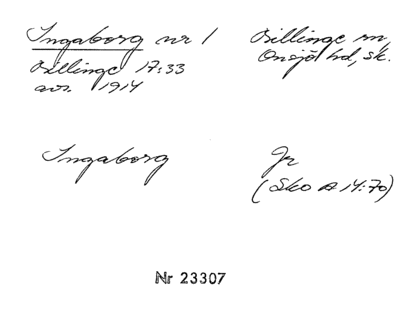 Ingaborg nr 1
Billinge 17:33
avs. 1914
Billinge sn,
Onsjö hd, sk.
Ingaborg
Jr
(Sko A 14:70)
Nr 23307